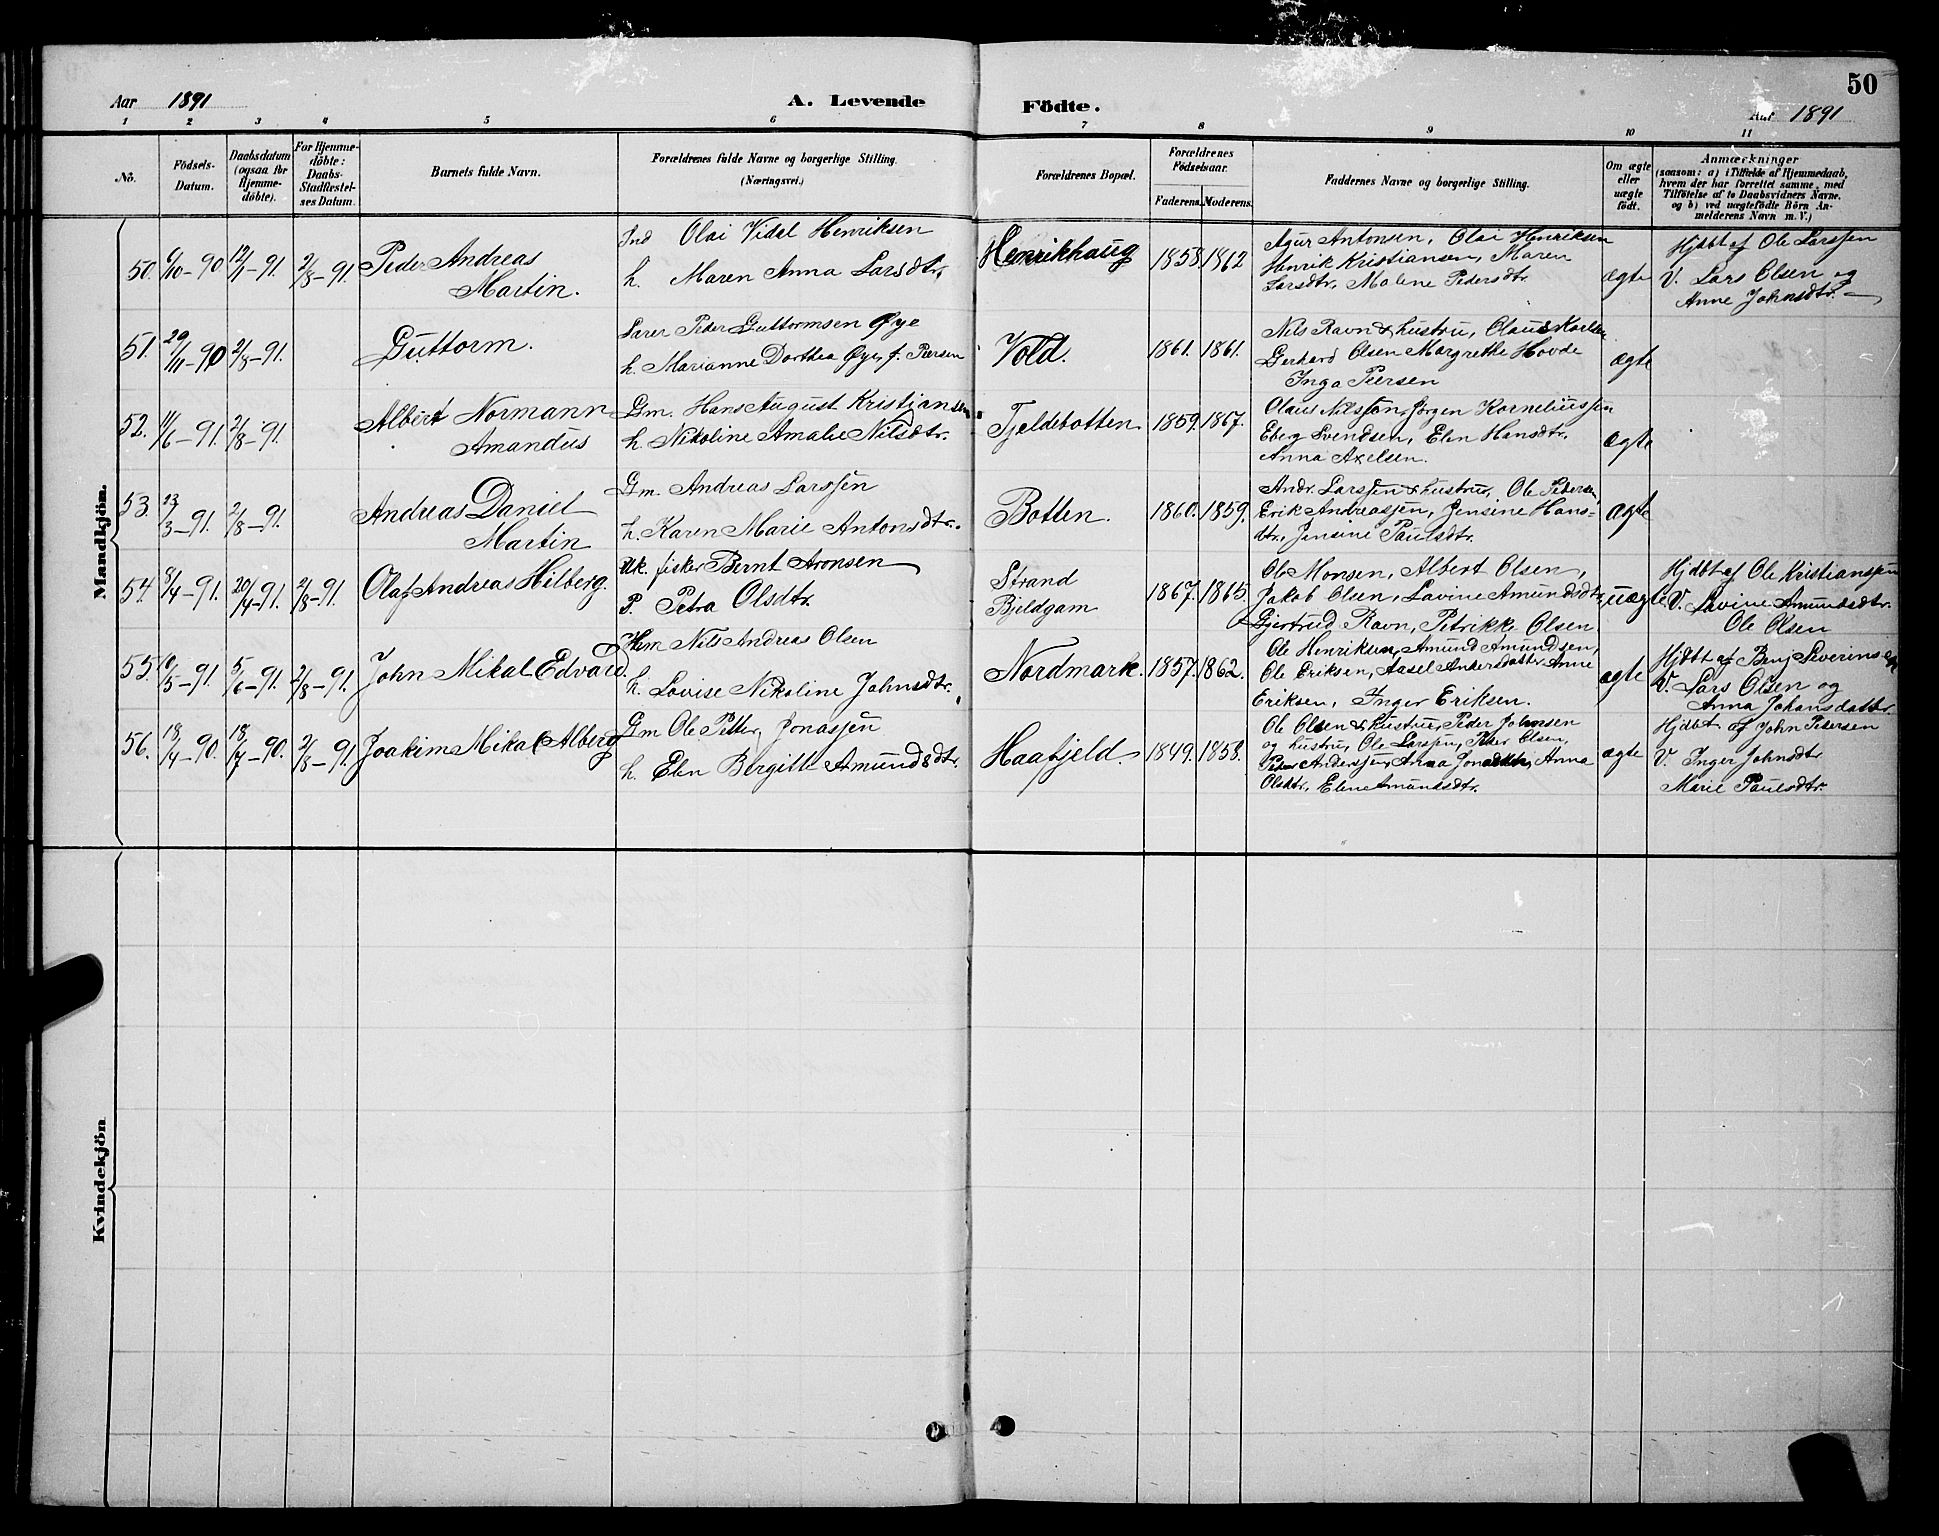 50
Aar 1891 A. Levende Födte. Aar 1891
1 2 3 4 5 6 7 8 9 10 11
No.
Födsels-
Datum.
Daabsdatum
(ogsaa for
Hjemme-
döbte).
For Hjemme-
döbte:
Daabs-
Stadfæstel-
ses Datum.
Barnets fulde Navn.
Forældrenes fulde Navne og borgerlige Stilling.
(Næringsvei.)
Forældrenes Bopæl.
Forældrenes
Födselsaar.
Faderens. Moderens.
Faddernes Navne og borgerlige Stilling.
Om ægte
eller
uægte
födt.
Anmærkninger
(saasom: a) i Tilfælde af Hjemmedaab,
hvem der har forrettet samme, med
Tilföielse af to Daabsvidners Navne.
og b) ved uægtefödte Börn An-
melderens Navn m. V.)
Mandkjön.
50. 6/10-90 12/11-91. 2/8-91. Peder Andreas
Martin.
Ind Olai Vidal Henriksen
h. Maren Anna Larsdtr,
Henrikhaug 1858 1862
Agur Antonsen, Olai Henriksen
Henrik Kristiansen, Maren
Larsdtr, Malene Pedersdtr.
ægte
Hjdbt af Ole Larssen
V. Lars Olsen og
Anne Johnsdtr.
51. 29/11-90 2/8-91. Guttorm.
Peder Guttormsen Øye
h. Marianne Dorthea Øye, f. Peersen
Vold. 1861. 1861.
Nils Ravn & hustru, Claus Karlsen
Gerhard Olsen Margrethe Hovde
Inga Peersen
ægte
52. 11/6-91. 2/8-91. Albert Normann
Amandus
Gm. Hans August Kristiansen
h. Nikoline Amalie Nilsdtr.
Tjeldebotten 1859. 1867.
Claus Nilssen, Jørgen Korneliussen
Eberg Svendsen, Elen Hansdtr.
Anna Axelsen.
ægte
53. 23/3-91. 2/8-91. Andreas Daniel
Martin
Gm. Andreas Larssen
h. Karen Marie Antonsdtr.
Botten. 1860. 1859.
Andr. Larssen & hustru, Ole Pedersen
Erik Andreassen, Jensine Hans-
dtr, Jensine Paulsdtr.
ægte
54. 8/4-91. 20/4-91. 2/8-91. Olaf Andreas Hilberg.
Uk. fisker Bernt Aronsen
P. Petra Olsdtr.
Strand
Bjeldgam 1867. 1865.
Ole Monsen, Albert Olsen,
Jakob Olsen, Lavine Amundsdtr,
Gjertrud Ravn, Petrikke Olsen
uægte
Hjdbt af Ole Kristianssen
V. Lavine Amundsdtr.
Ole Olsen
55. 9/5-91. 5/6-91. 2/8-91. John Mikal Edvard.
Hem Nils Andreas Olsen
h. Lovise Nikoline Johnsdtr.
Nordmark. 1857. 1862.
Ole Henriksen, Amund Amundsen,
Ole Eriksen, Aasel Andersdatter Anne
Eriksen, Inger Eriksen.
ægte
Hjdbt af Benj Severinsen
V. Lars Olsen og
Anna Johansdattr.
56. 18/4-90. 18/7-90. 2/8-91. Joakim Mikal Alberg
Gm Ole Petter Jonassen
h. Elen Bergitte Amundsdtr.
Haafjeld 1849. 1858.
Ole Olsen & hustru, Peder Johnsen
og hustru, Ole Larssen, Peder Olsen,
Peder Anderssen, Anna Jonasdtr, Anna
Olsdtr, Eline Amundsdtr.
ægte
Hjdbt af John Petersen
V. Inger Johnsdtr
Marie Paulsdtr.
Kvindekjön